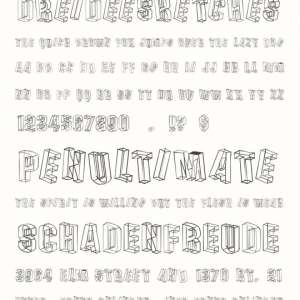 THE QUICK BROWN FOX JUMPS OVER THE LAZY DOG
AA BB CC DD EE FF GG HH II JJ KK LL MM
NN OO PP QQ RR SS TT UU VV WW XX YY ZZ
1234567890 . !? $
PENULTIMATE
THE SPIRIT IS WILLING BUT THE FLESH IS WEAK
SCHADENFREUDE
3264 ELM STREET AND 1370 RT. 21